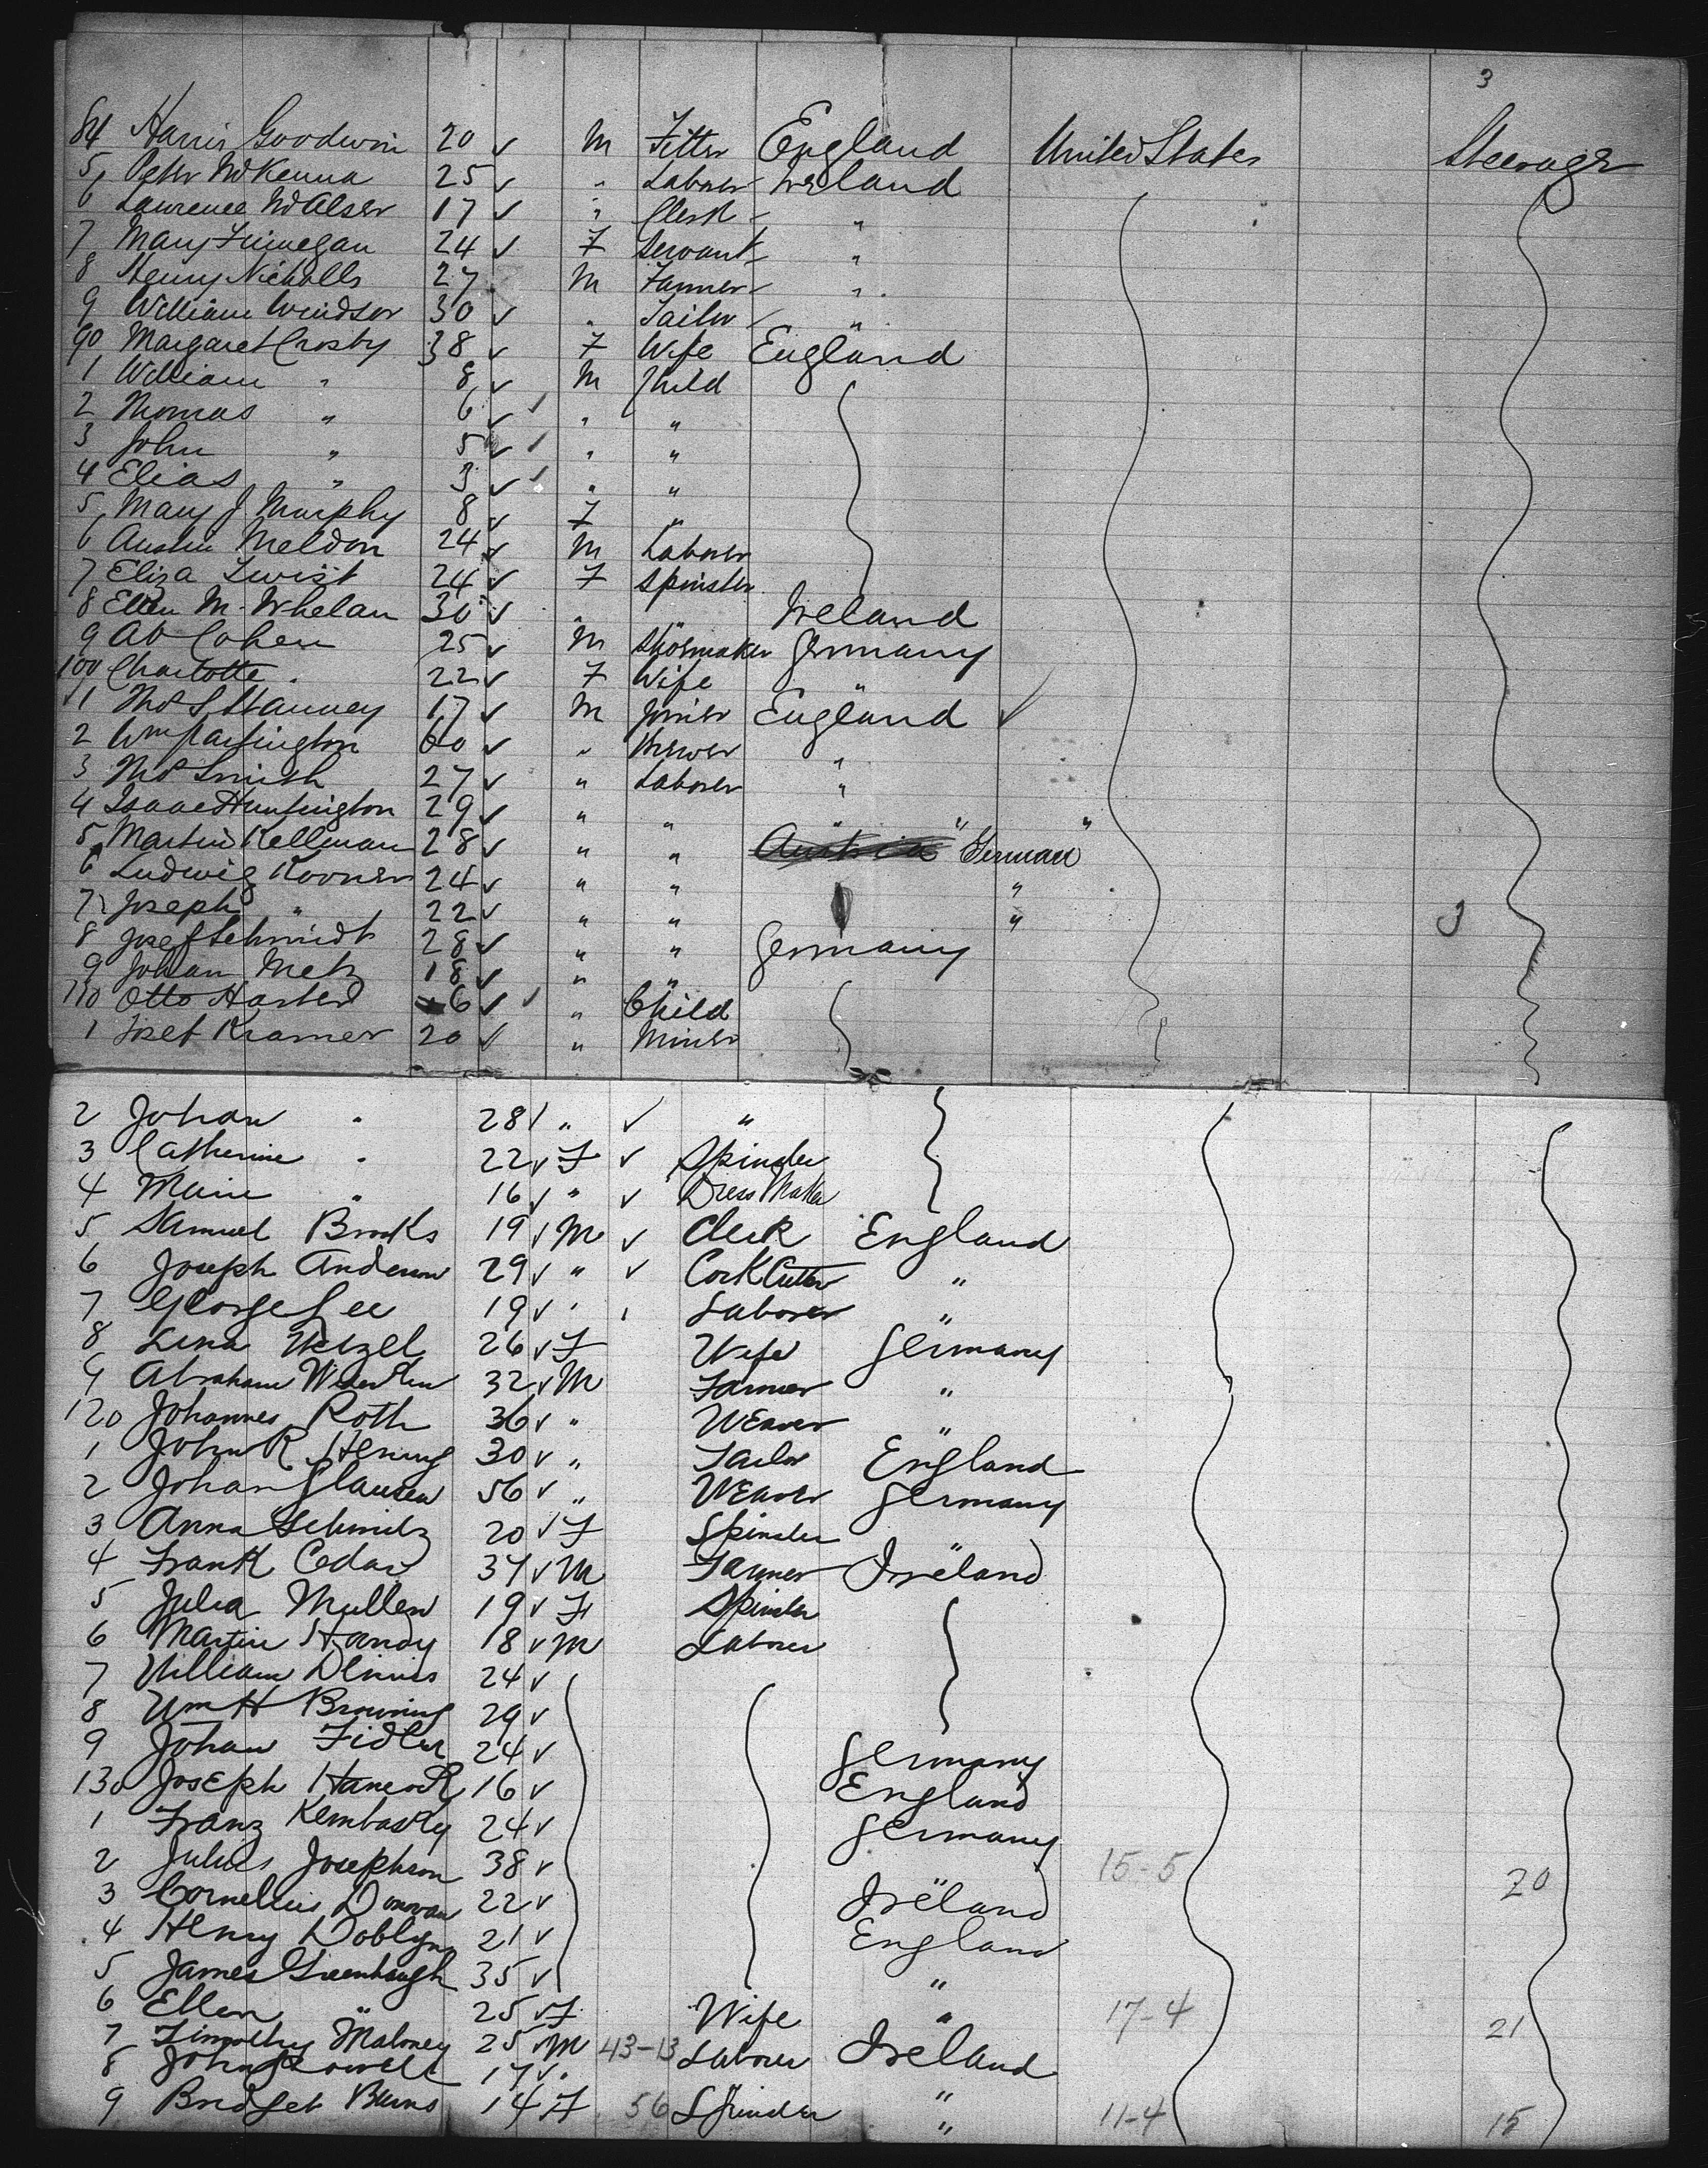 3
84 Harris Goodwin 20 ✓ M Fitter England United States Steerage
5 Peter McKenna 25 ✓ " Laborer Ireland
6 Laurence 17 ✓ " Clerk "
7 Mary Finnegan 24 ✓ F Servant "
8 Henry Nicholls 27 M Farmer "
9 William Windsor 30 ✓ " Tailor "
90 Margaret Crosby 38 ✓ F Wife England
1 William " 8 ✓ M Child
2 Thomas " 6 ✓ ✓ " "
3 John " 5 ✓ ✓ " "
4 Elias " 3 ✓ ✓ " "
5 Mary J Murphy 8 ✓ F "
6 Austin Meldon 24 ✓ M Laborer
7 Eliza Twist 24 ✓ F Spinster
8 Ellen M. Whelan 30 ✓ " " Ireland
9 Ab Cohen 25 ✓ M Shoemaker Germany
100 Charlotte " 22 ✓ F Wife "
11 Thos S Stanney 17 ✓ M Joiner England ✓
2 Wm Partington 60 ✓ " Brewer "
3 Thos Smith 27 ✓ " Laborer "
4 Isaac Huntington 29 ✓ " " " " "
5 Martin Kellman 28 ✓ " " Austria German
6 Ludwig 24 ✓ " " "
7 Joseph " 22 ✓ " " " 3
8 Josef Schmidt 28 ✓ " " Germany
9 Johan Metz 18 ✓ " "
110 Otto 6 ✓ ✓ " Child
1 Josef Kramer 20 ✓ " Miner
2 Johan " 28 ✓ " ✓ "
3 Catherine " 22 ✓ F ✓ Spinster
4 Marie " 16 ✓ " ✓ Dress Maker
5 Samuel Brooks 19 ✓ M ✓ Clerk England
6 Joseph Anderson 29 ✓ " ✓ Cork Cutter "
7 George Lee 19 ✓ " Laborer "
8 Lena Wetzel 26 ✓ F Wife Germany
9 Abraham 32 ✓ M Farmer "
120 Johannes Roth 36 ✓ " Weaver "
1 John R Henning 30 ✓ " Tailor England
2 Johan Clausen 56 ✓ " Weaver Germany
3 Anna Schmitz 20 ✓ F Spinster "
4 Frank Cedar 37 ✓ M Farmer Ireland
5 Julia Mullen 19 ✓ F Spinster
6 Martin Handy 18 ✓ M Laborer
7 William Dennis 24 ✓
8 Wm H Browning 29 ✓
9 Johan Fidler 24 ✓ Germany
130 Joseph Hancock 16 ✓ England
1 Franz 24 ✓ Germany
2 Julius Josephson 38 ✓ " 15-5 20
3 Cornelius Donovan 22 ✓ Ireland
4 Henry Doblyn 21 ✓ England
5 James Greenhaugh 35 ✓ "
6 Ellen " 25 ✓ F Wife " 17-4 21
7 Timothy Maloney 25 M 43-13 Laborer Ireland
8 John 17 ✓ " "
9 Bridget Burns 14 F 56 Spinster " 11-4 15